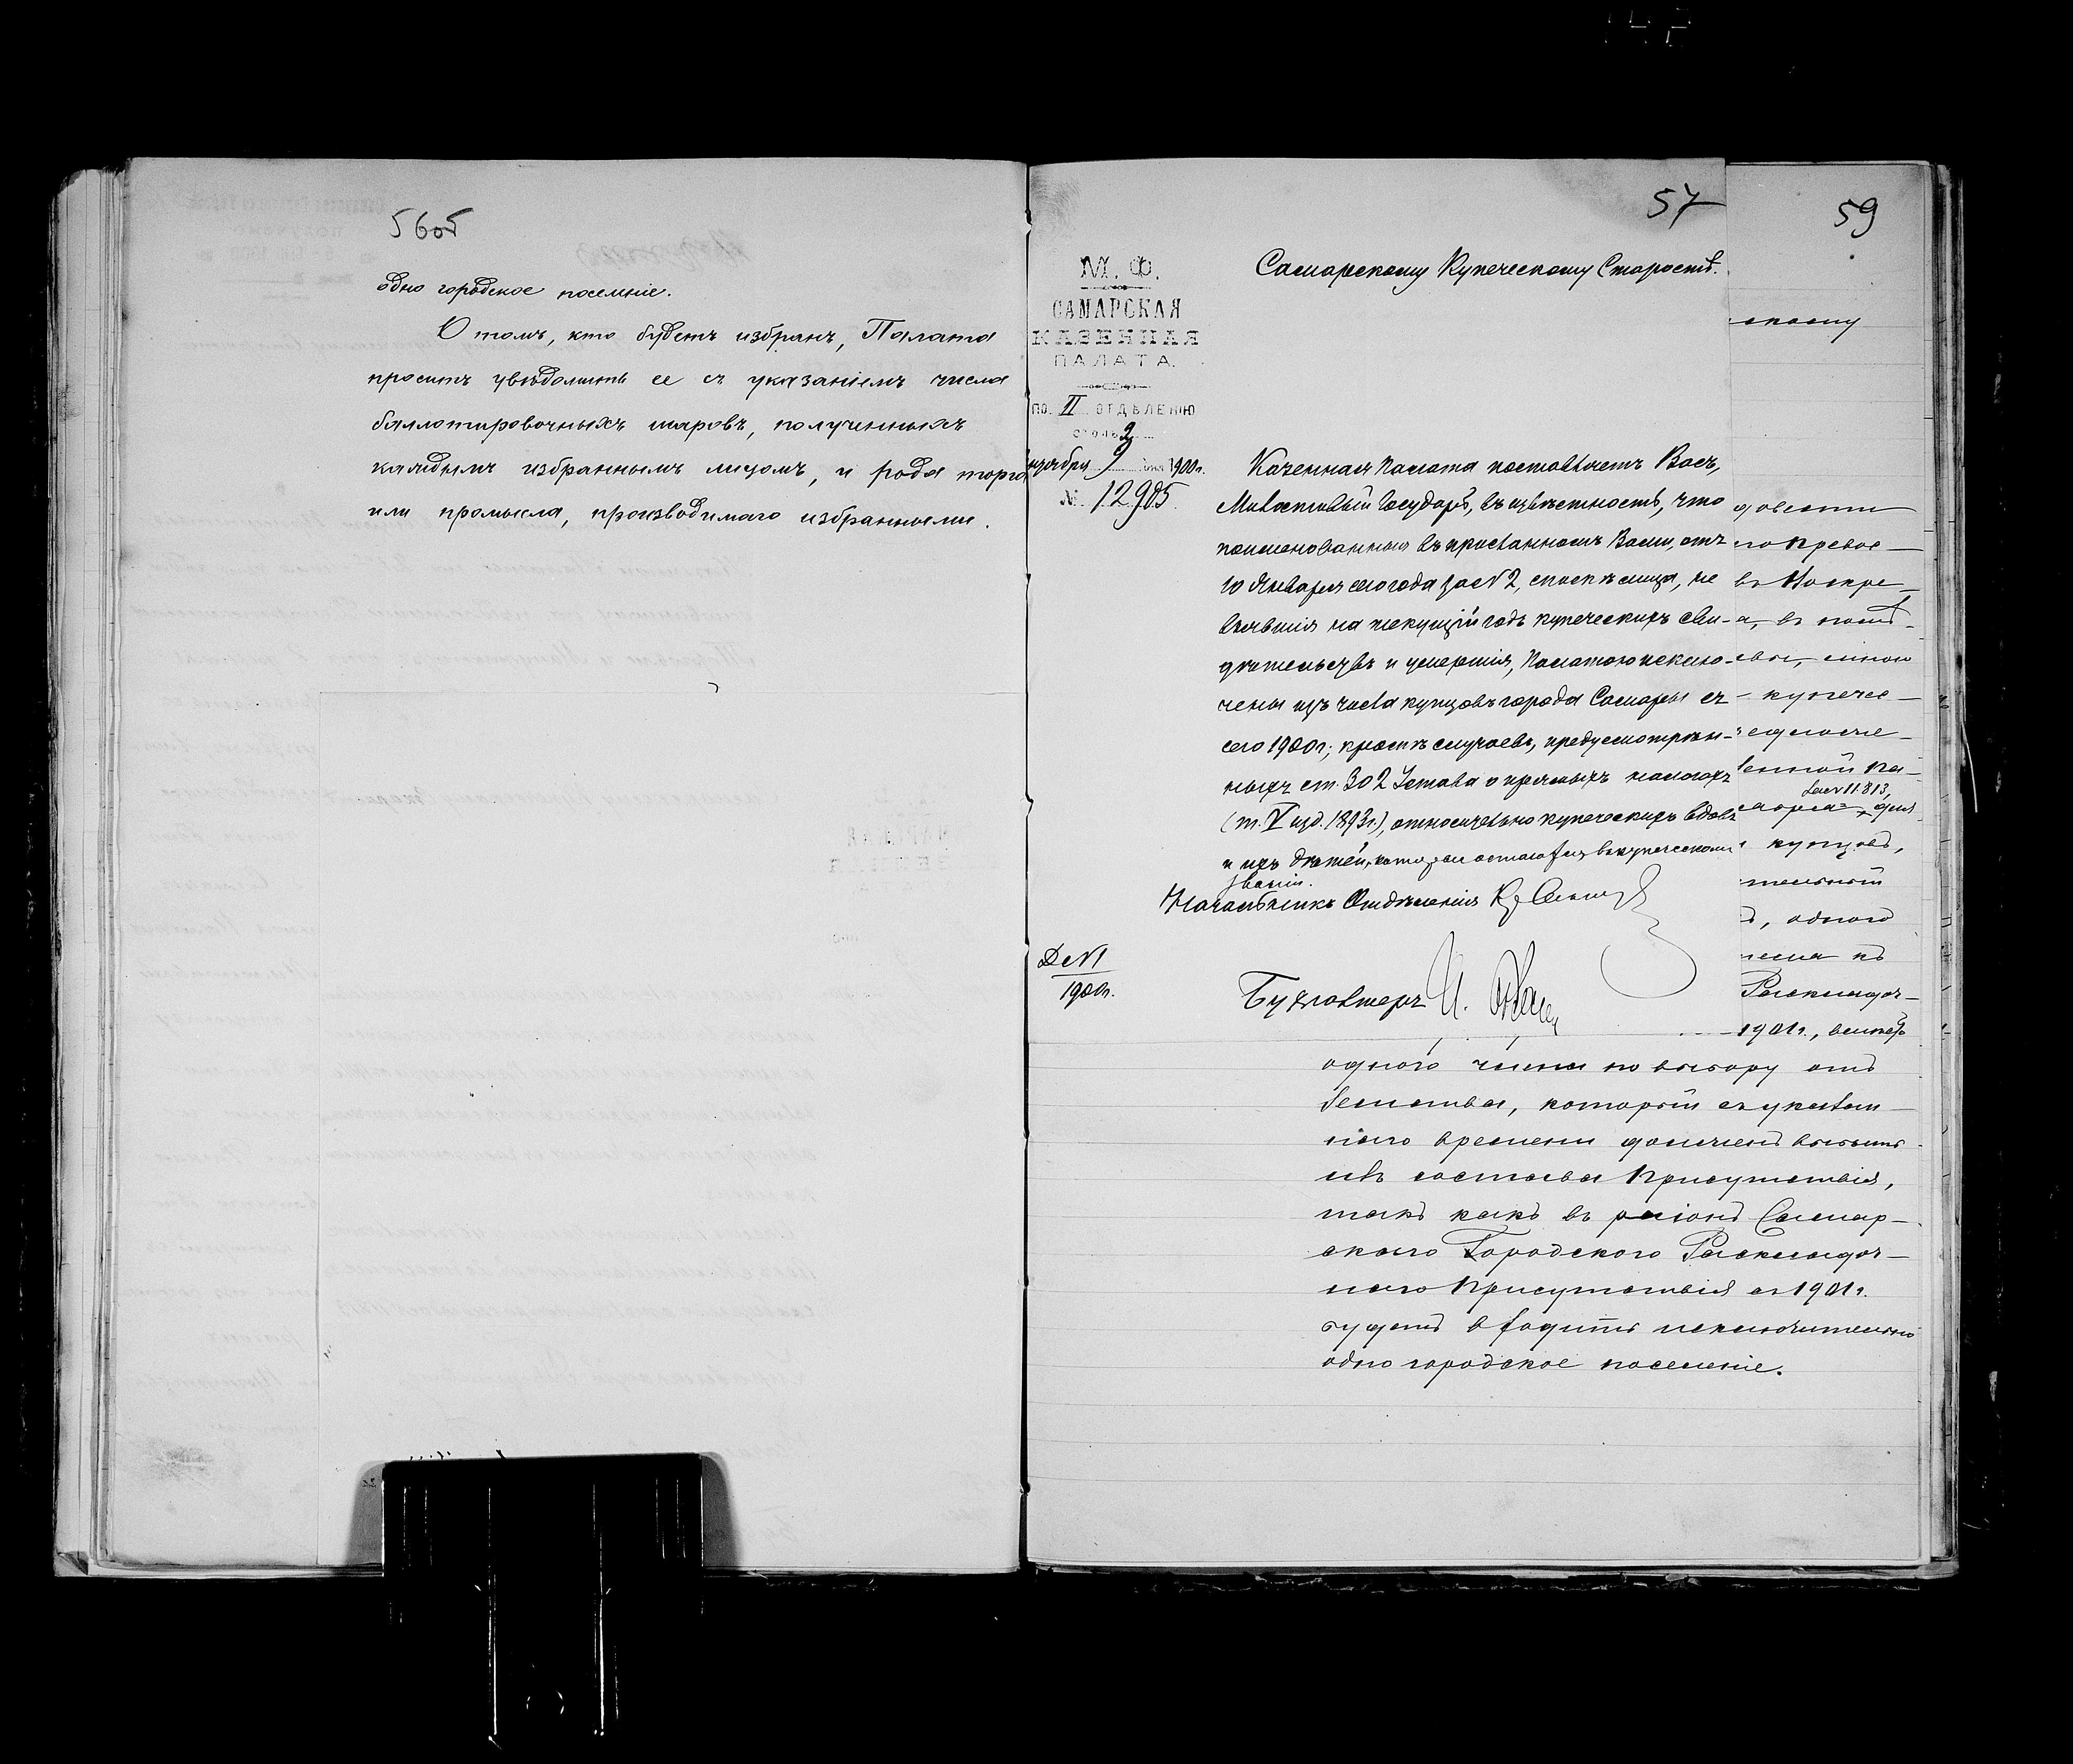 56об
одно городское поселеніе.
О томъ, кто будетъ избранъ, Палата
проситъ увѣдомить ее съ указаніемъ числа
баллотировочныхъ шаровъ, полученныхъ
каждымъ избраннымъ лицомъ, и рода торга
или промысла, производимаго избранными.
57
М. Ф.
САМАРСКАЯ
КАЗЕННАЯ
ПАЛАТА.
ПО II ОТДѢЛЕНІЮ
столъ 2
ноября 9 дня 1900 г.
№ 12985
Самарскому Купеческому Старостѣ.
Казенная Палата поставляетъ Васъ,
Милостивый Государь, въ извѣстность, что
поименованныя въ присланномъ Вами, отъ
10 Января сего года за № 2, спискѣ лица, не
взявшія на текущій годъ купеческихъ сви-
дѣтельствъ и умершія, Палатою исклю-
чены изъ числа купцовъ города Самары съ
сего 1900 г.; кромѣ случаевъ, предусмотрѣн-
ныхъ ст. 302 Устава о прямыхъ налогахъ
(т. V изд. 1893 г.), относительно купеческихъ вдовъ
и ихъ дѣтей, которыя остаются въ купеческомъ
званіи.
Начальникъ Отдѣленія
Д № 1
1900 г.
Бухгалтеръ И.
59
скому
довести
по
въ
а, въ
купече-
Па-
за № 11813,
купцовъ,
, одного
къ
Раскладоч-
1901 г.,
одного члена по выбору отъ
ства, который съ указан-
наго времени долженъ выбыть
изъ состава Присутствія,
такъ какъ въ раіонъ Самар-
скаго Городского Раскладоч-
наго Присутствія съ 1901 г.
будетъ входить исключительно
одно городское поселеніе.